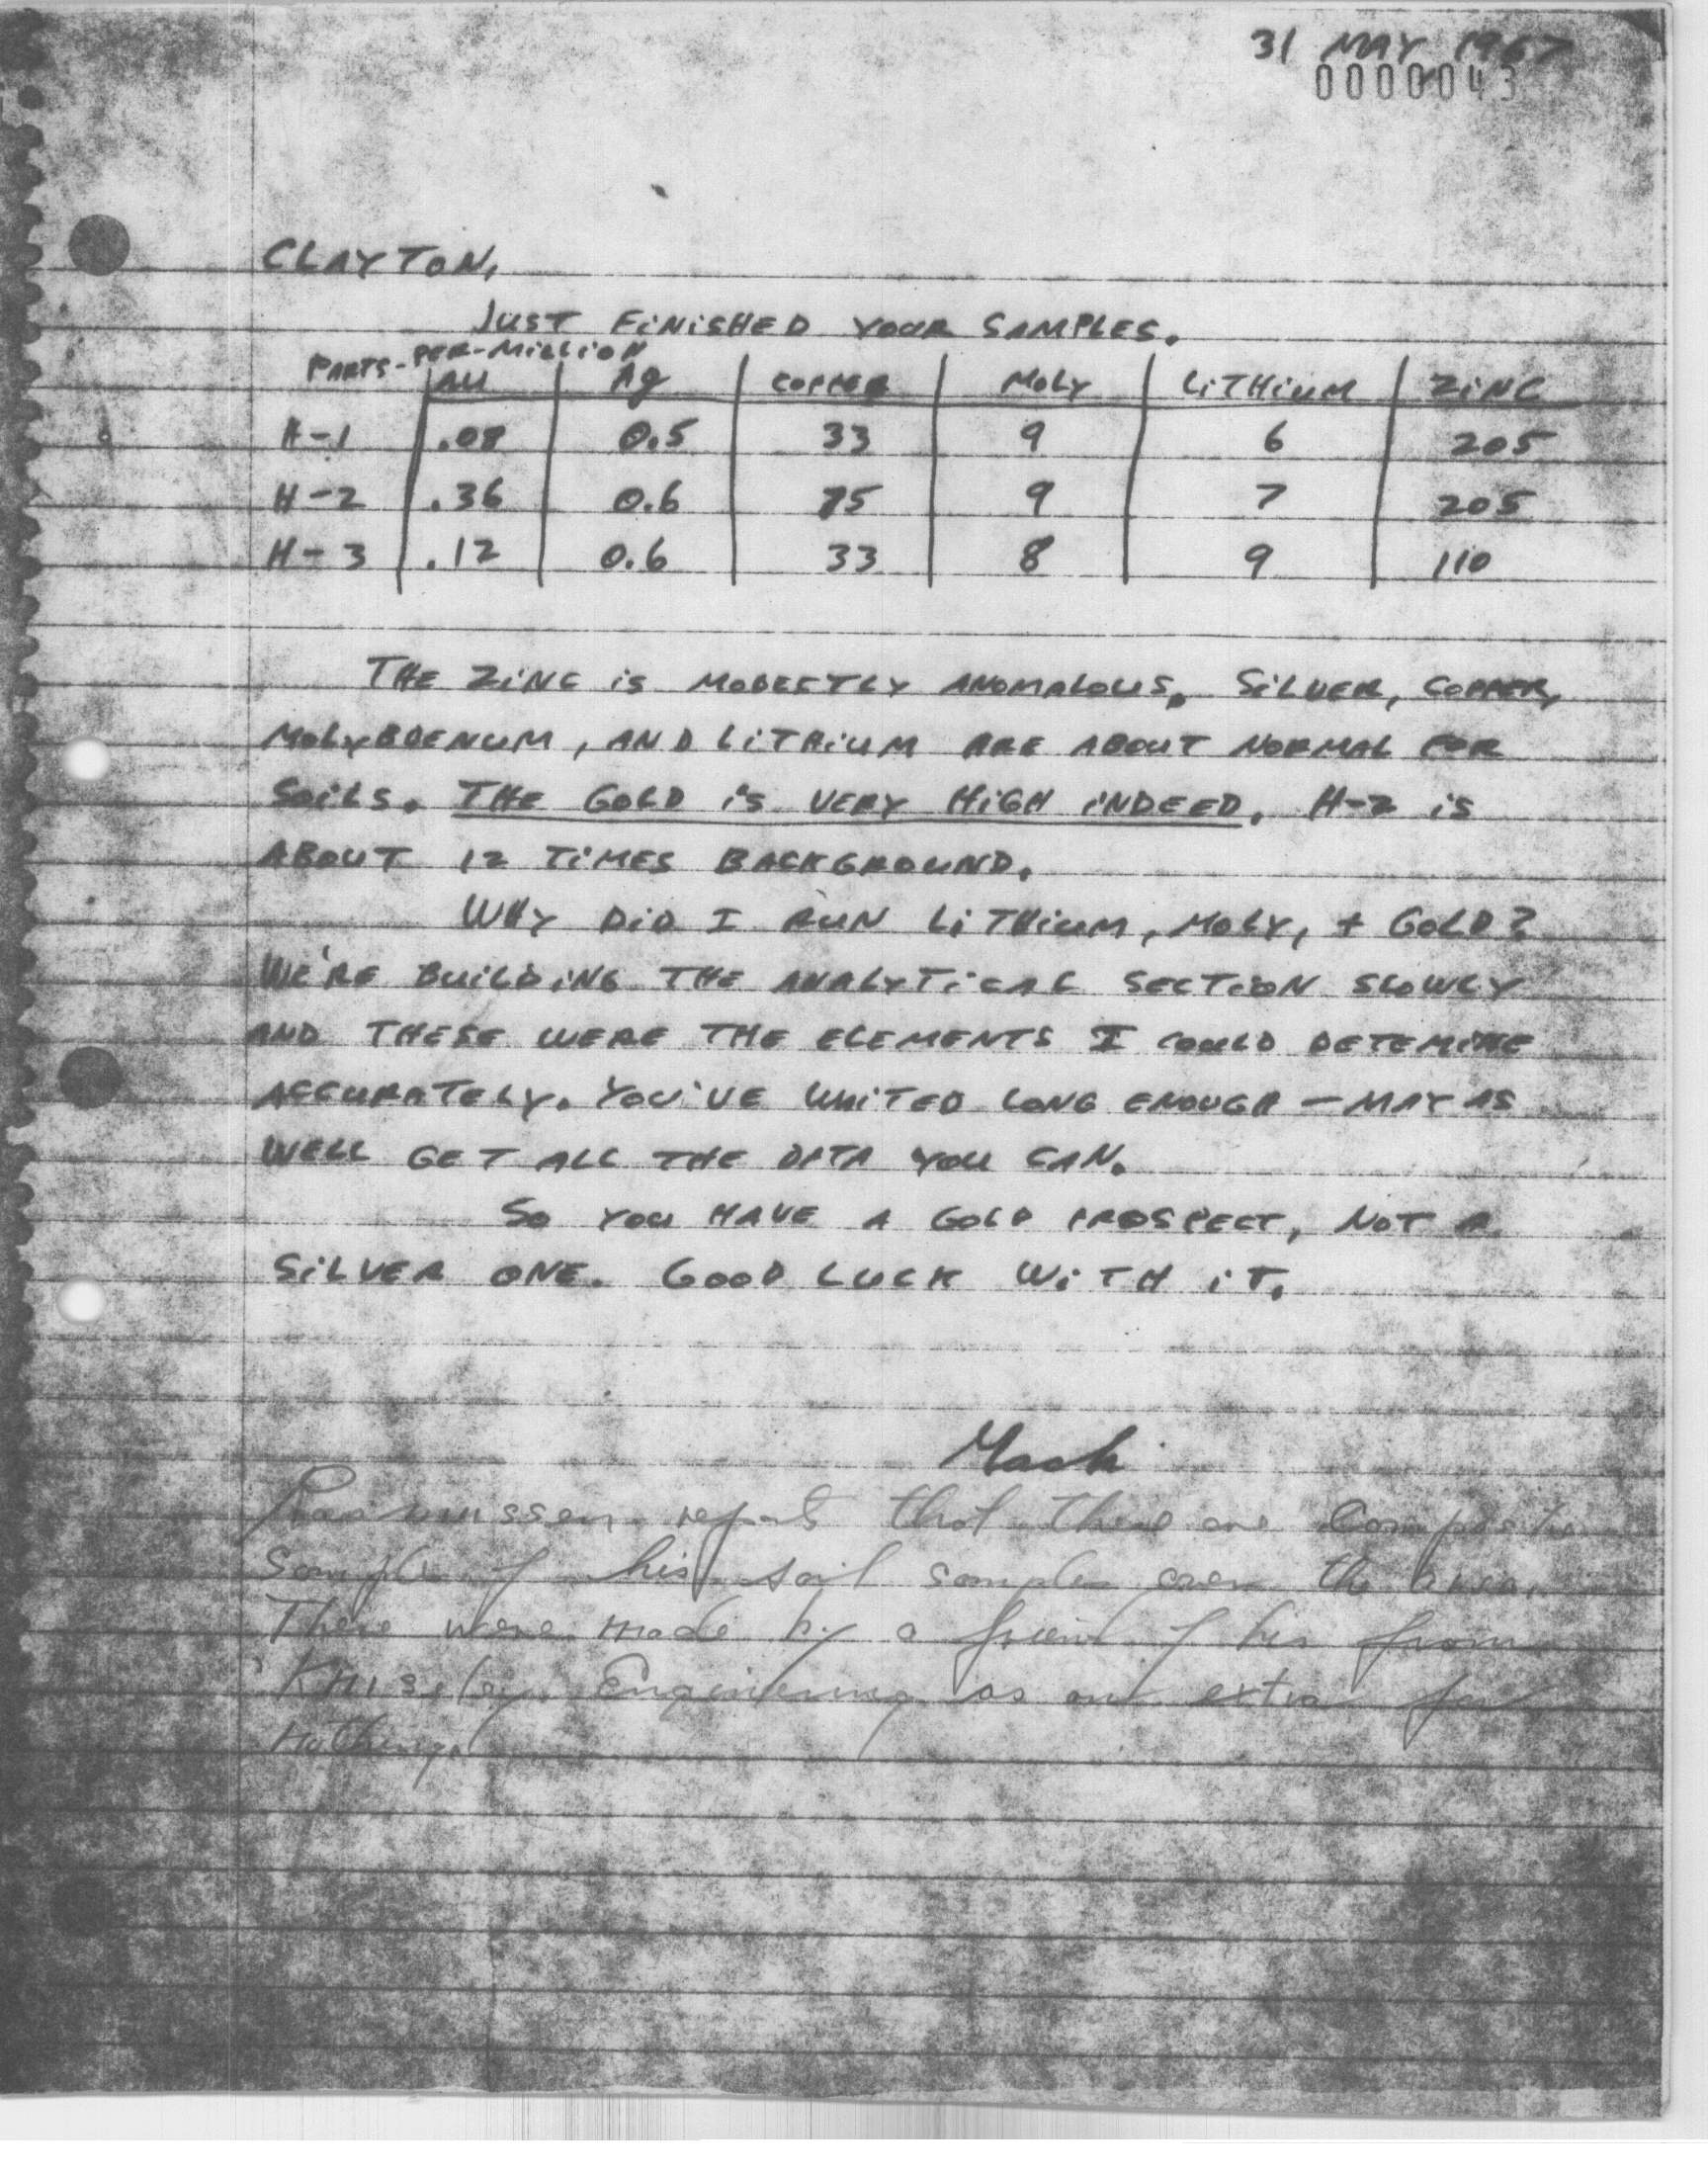 31 MAY 1967
0000043
CLAYTON,
JUST FINISHED YOUR SAMPLES.
PARTS-PER-MILLION
AU Ag COPPER MOLY LITHIUM ZINC
H-1 .08 0.5 33 9 6 205
H-2 .36 0.6 75 9 7 205
H-3 .12 0.6 33 8 9 110
THE ZINC IS MODESTLY ANOMALOUS. SILVER, COPPER,
MOLYBDENUM, AND LITHIUM ARE ABOUT NORMAL FOR
SOILS. THE GOLD IS VERY HIGH INDEED. H-2 IS
ABOUT 12 TIMES BACKGROUND.
WHY DID I RUN LITHIUM, MOLY, + GOLD?
WE'RE BUILDING THE ANALYTICAL SECTION SLOWLY
AND THESE WERE THE ELEMENTS I COULD DETEMINE
ACCURATELY. YOU'VE WAITED LONG ENOUGH - MAY AS
WELL GET ALL THE DATA YOU CAN.
SO YOU HAVE A GOLD PROSPECT, NOT A
SILVER ONE. GOOD LUCK WITH IT.
Mack
Rasmussen reports that these are Composite
Samples of his soil samples over the area.
These were made by a friend of his from
Engineering as an extra for
nothing.